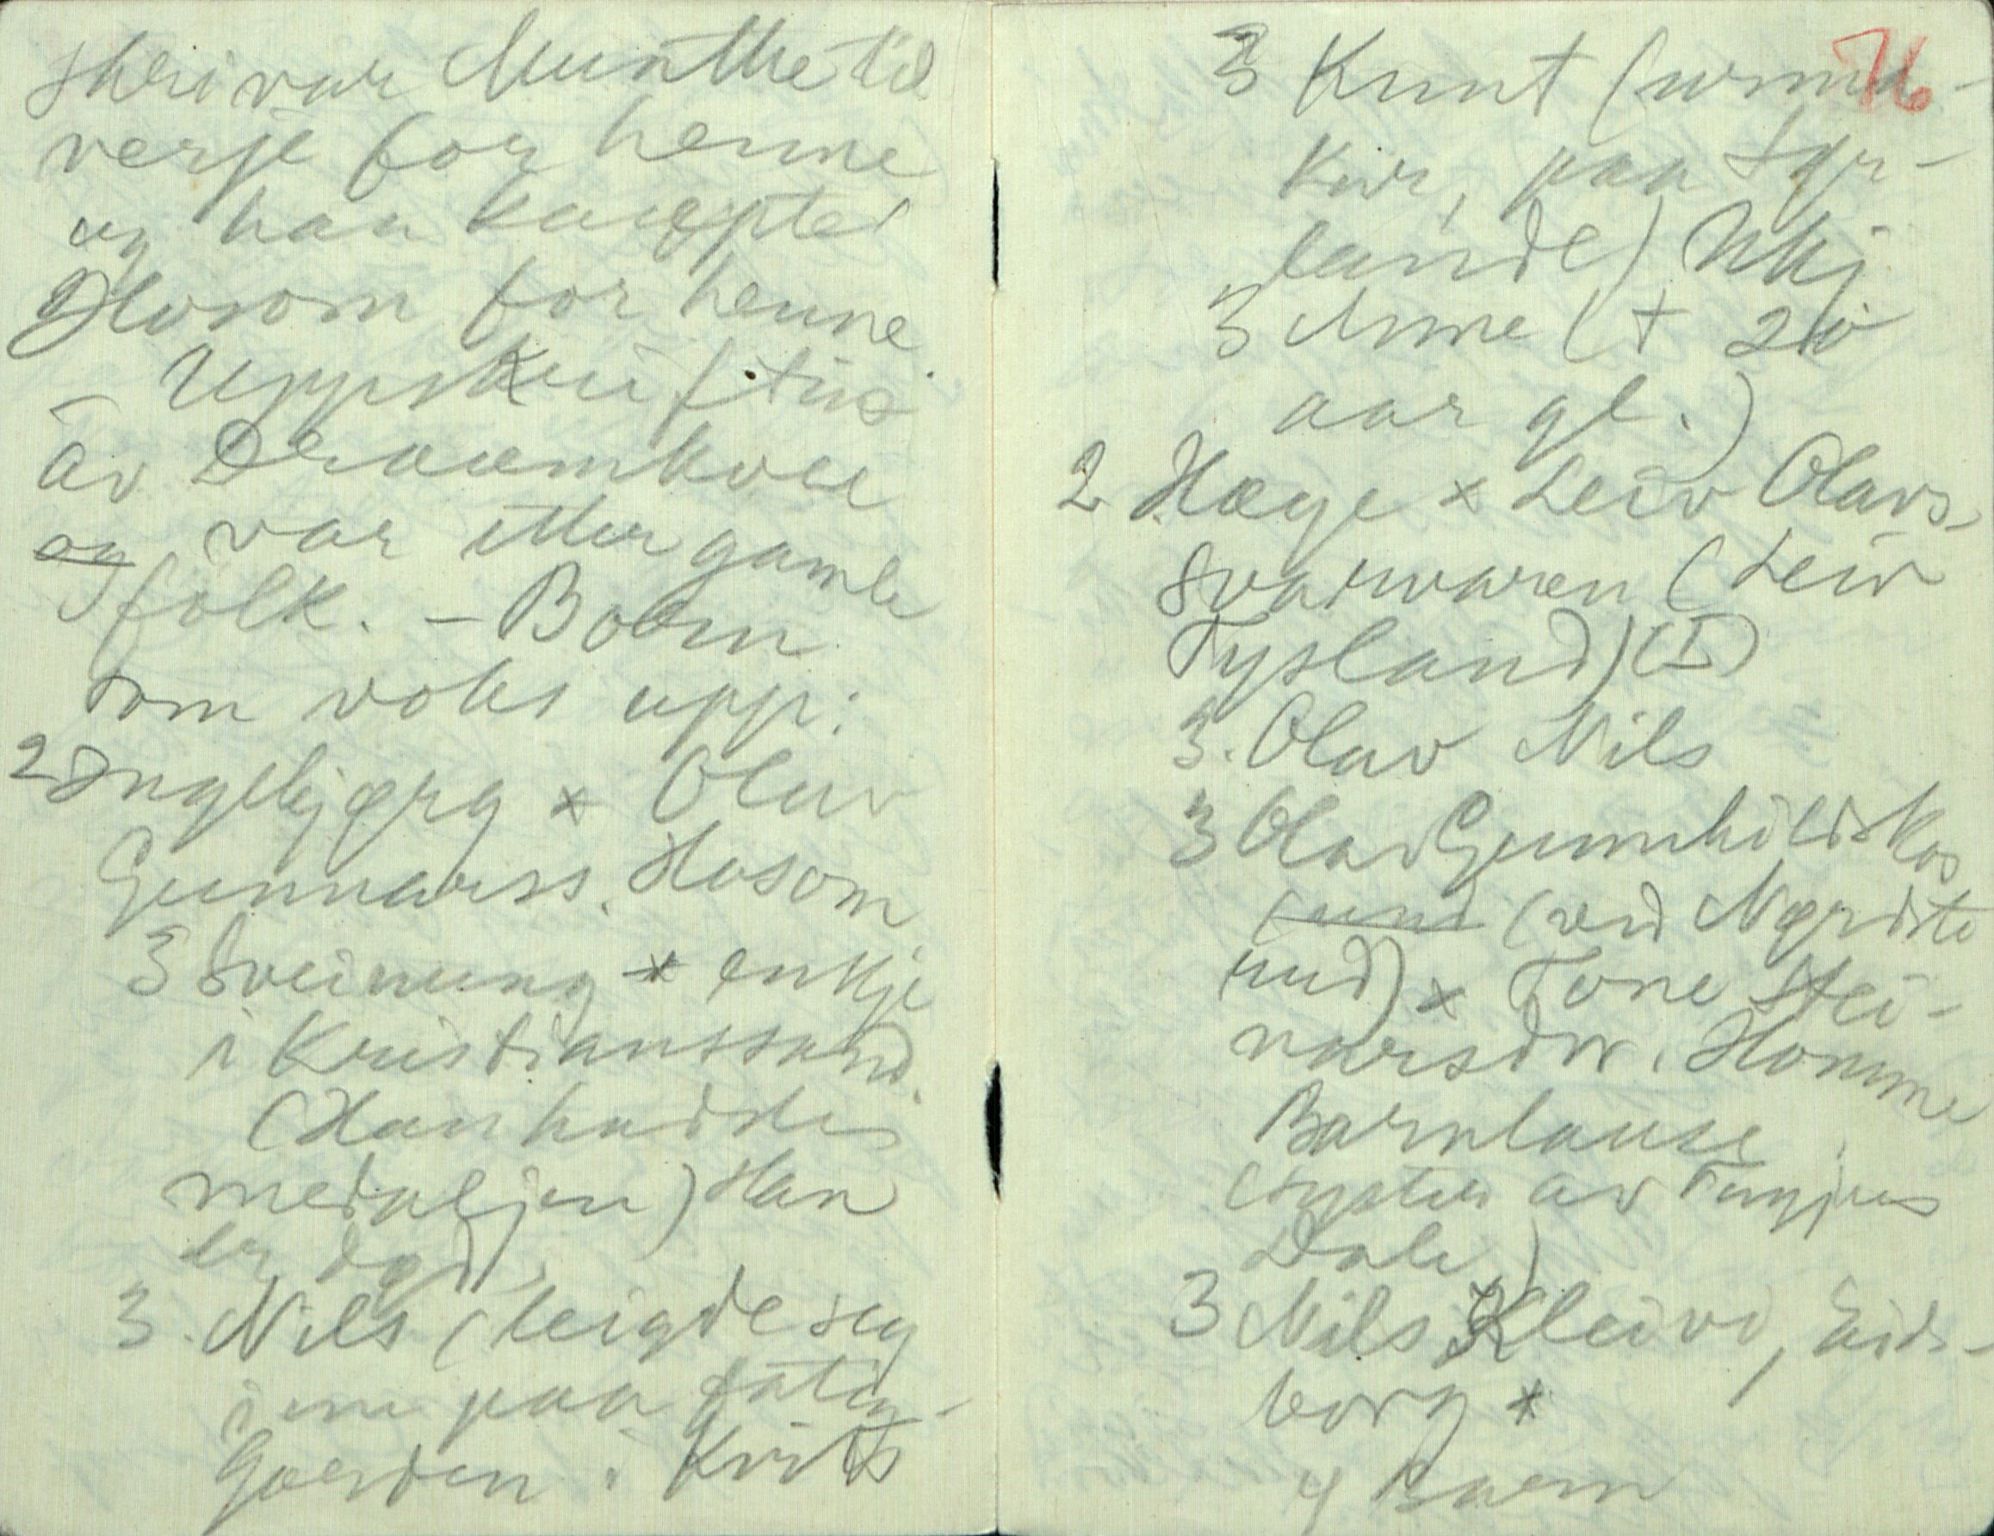 skrivar Munthe til
verje for henne
og han kaupte
Hosom for henne
– Uppskrifti
av Draumkvæe
og var etter gamle
folk. – Born
som voks upp:
2 Ingebjørg x Olav
Gunnarss. Hosom
3 Sveinung x enkje
i Kristianssand.
(Han hadde
medaljen) Han
er død.
3. Nils (leigde seg
inn paa fatig-
gaarden i Krits
76
3 Knut (urma-
kar, paa Sør-
lande) Ukj
3 Anne (+ 20
aar gl.)
2 Hæge x Leiv Olavs-
Svarvaren (Leiv
Tysland) (I)
3. Olav Nils
3 Olav Gunnhildskos
(ved Nørdste
rud) x Tone Stei-
narsdtr. Homme
Barnlause
(syster av Torgjus
Dale)
3 Nils Kleivi, Eids-
borg x
4 Born